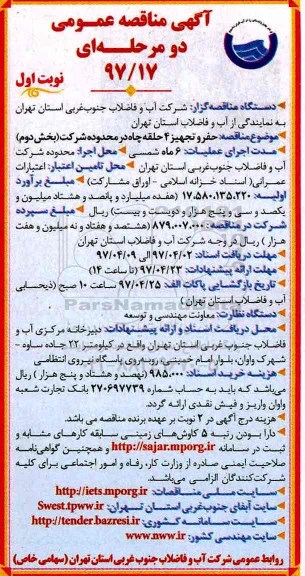 آگهی مناقصه عمومی
دو مرحله‌ای
۹۷/۱۷
نوبت اول
دستگاه مناقصه‌گزار: شرکت آب و فاضلاب جنوب‌غربی استان تهران
به نمایندگی از آب و فاضلاب استان تهران
موضوع مناقصه: حفر و تجهیز ۴ حلقه چاه در محدوده شرکت (بخش دوم)
مدت اجرای عملیات: ۶ ماه شمسی محل اجرا: محدوده شرکت
آب و فاضلاب جنوب‌غربی استان تهران محل تامین اعتبار: اعتبارات
عمرانی (اسناد خزانه اسلامی - اوراق مشارکت) مبلغ برآورد
اولیه: ۱۷،۵۸۰،۱۳۵،۲۲۰ (هفده میلیارد و پانصد و هشتاد میلیون و
یکصد و سی و پنج هزار و دویست و بیست) ریال مبلغ سپرده
شرکت در مناقصه: ۸۷۹،۰۰۷،۰۰۰ (هشتصد و هفتاد و نه میلیون و هفت
هزار) ریال در وجه شرکت آب و فاضلاب استان تهران
مهلت دریافت اسناد: ۹۷/۰۴/۰۲ الی ۹۷/۰۴/۰۹
مهلت ارائه پیشنهادات: ۹۷/۰۴/۲۳ (تا ساعت ۱۴)
تاریخ بازگشایی پاکات الف: ۹۷/۰۴/۲۵ ساعت ۱۰ صبح (ذیحسابی
آب و فاضلاب استان تهران)
دستگاه نظارت: معاونت مهندسی و توسعه
محل دریافت اسناد و ارائه پیشنهادات: دبیرخانه مرکزی آب و
فاضلاب جنوب غربی استان تهران واقع در کیلومتر ۲۲ جاده ساوه -
شهرک واوان، بلوار امام خمینی، روبه‌روی پاسگاه نیروی انتظامی
هزینه خرید اسناد: ۹۸۵،۰۰۰ (نهصد و هشتاد و پنج هزار) ریال
می‌باشد که باید به حساب شماره ۲۷۰۶۹۷۷۳۹ بانک تجارت شعبه
واوان واریز و فیش نقدی ارائه گردد.
هزینه درج آگهی در ۲ نوبت بر عهده برنده مناقصه می باشد.
دارا بودن رتبه ۵ کاوش‌های زمینی سابقه کارهای مشابه و
ثبت در سامانه http://sajar.mporg.ir و همچنین گواهی‌نامه
صلاحیت ایمنی صادره از وزارت کار، رفاه و امور اجتماعی برای کلیه
شرکت‌کنندگان الزامی می‌باشد.
سایت ملی مناقصات: http://iets.mporg.ir
سایت آبفای جنوب‌غربی استان تهران: Swest.tpww.ir
سایت سامانه کشوری: http://tender.bazresi.ir
سایت مهندسی کشور: www.nww.ir
روابط عمومی شرکت آب و فاضلاب جنوب غربی استان تهران (سهامی خاص)